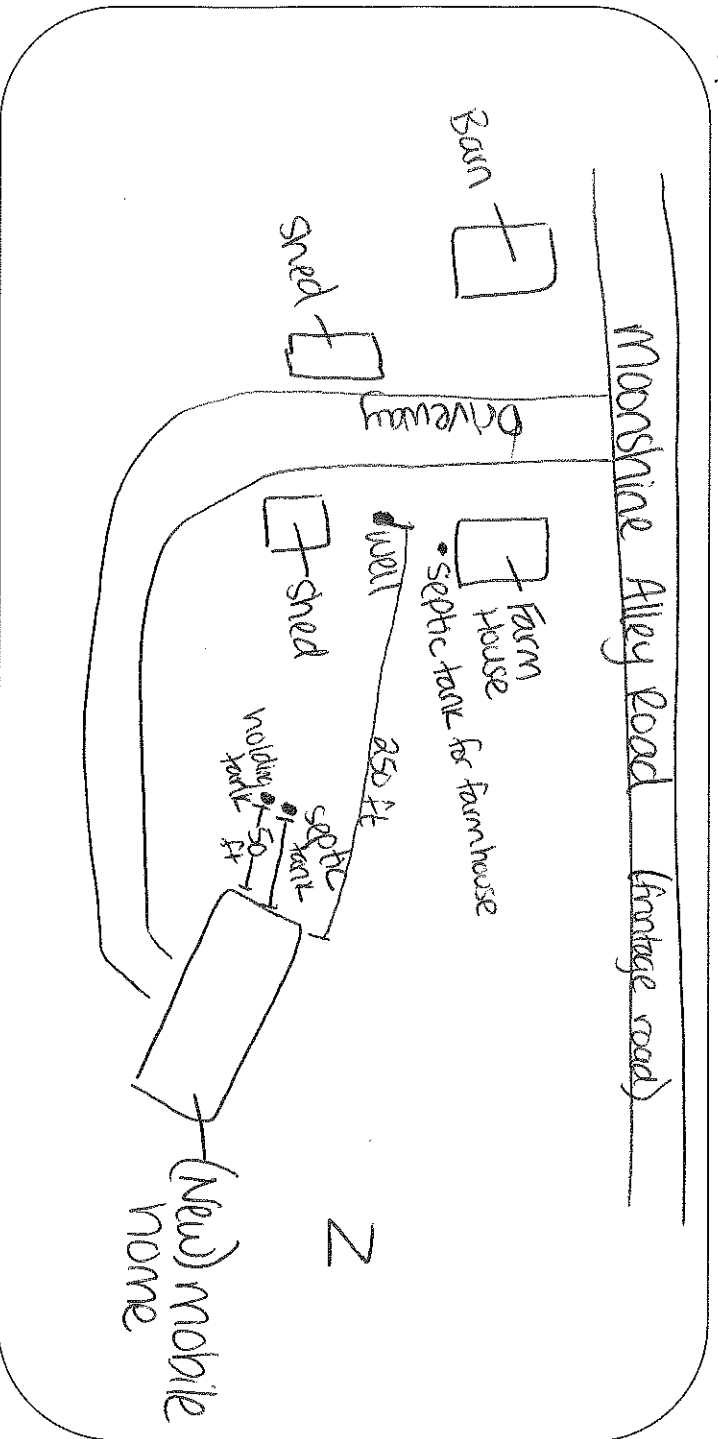 Moonshine Alley Road (frontage road)
Barn
Driveway
Farm
House
• septic tank for farmhouse
shed
well
250 ft
shed
septic
tank
holding
tank
50
ft
N
(New) mobile
home